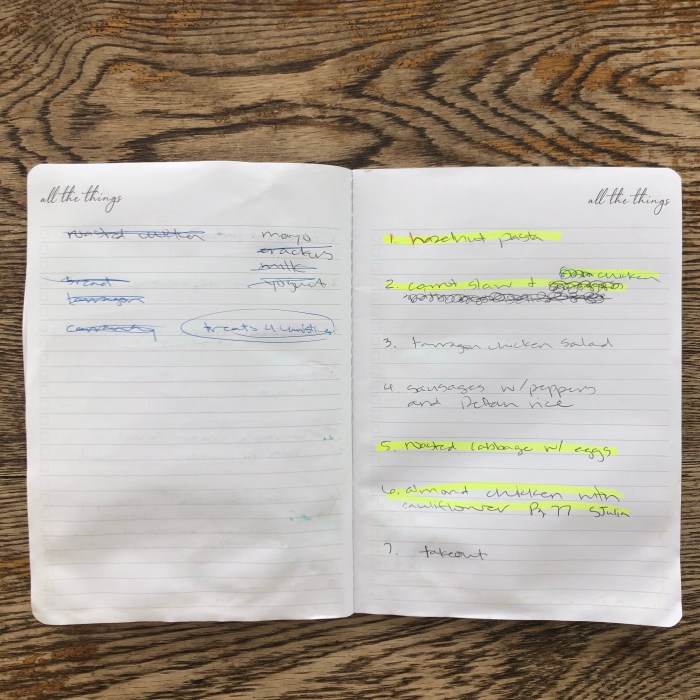 all the things
roasted chicken
mayo
crackers
milk
bread
yogurt
tarragon
treats 4
all the things
1. hazelnut pasta
chicken
2. carrot slaw +
3. tarragon chicken salad
4. sausages w/peppers
and rice
5. roasted cabbage w/ eggs
6. almond chicken with
cauliflower Pg 77 SJulia
7. takeout